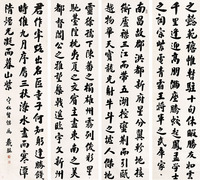 南昌故郡洪都新府星分翼軫地接
衡廬襟三江而帶五湖控蠻荊而引甌
越物華天寶龍光射牛斗之墟人傑地
靈徐孺下陳蕃之榻雄州霧列俊彩星
馳臺隍枕夷夏之交賓主盡東南之美
都督閻公之雅望棨戟遙臨宇文新州
之懿範襜帷暫駐十旬休暇勝友如雲
千里逢迎高朋滿座騰蛟起鳳孟學士
之詞宗紫電青霜王將軍之武庫家
君作宰路出名區童子何知躬逢勝餞
時維九月序屬三秋潦水盡而寒潭
清煙光凝而暮山紫